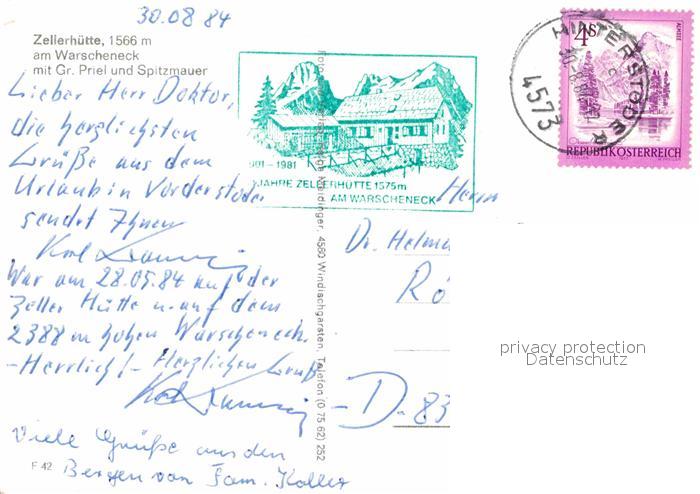 30.08 84
Zellerhütte, 1566 m
am Warscheneck
mit Gr. Priel und Spitzmauer
Lieber Herr Doktor,
die herzlichsten
Grüße aus dem
Urlaub in Vorderstoder
sendet Ihnen
Karl
War am 28.05.84 auf der
Zeller Hütte u. auf dem
2388 m hohen Warscheneck.
-Herrlich!- Herzlichen Gruß
Karl
Viele Grüße aus den
Bergen von Fam. Koller
F 42
1901-1981
JAHRE ZELLERHÜTTE 1575m
AM WARSCHENECK
Haidinger, 4580 Windischgarsten, Telefon (0 75 62) 252
4S
ALMSEE
REPUBLIK ÖSTERREICH
HINTERSTODER
4573
Herrn
Dr. Helmu
Rö
privacy protection
Datenschutz
-D-83